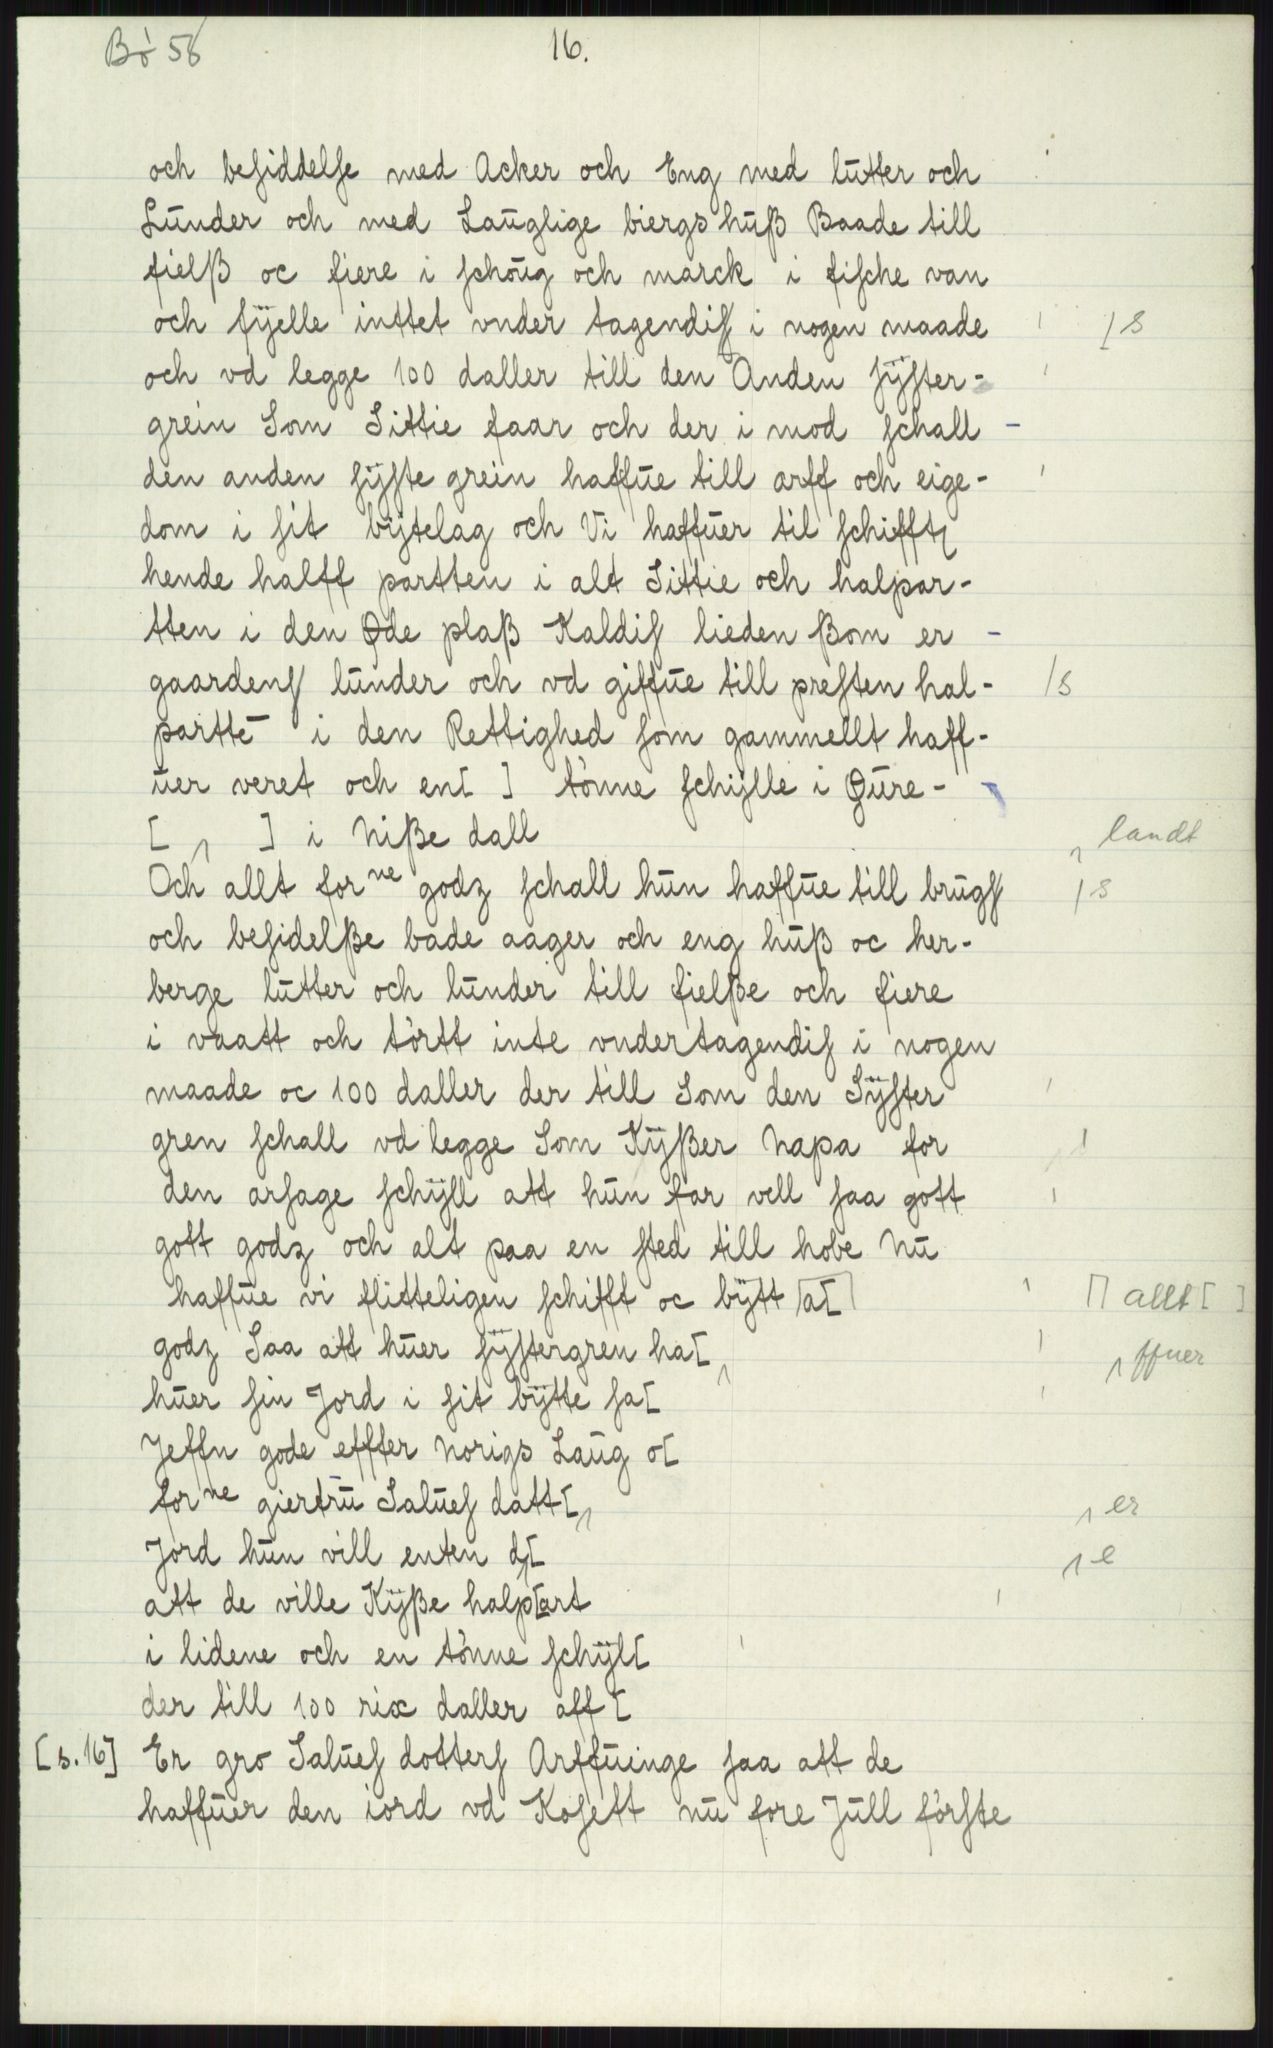 Bö 58
16.
och besiddelse med Acker och Eng med lutter och
Lunder och med Lauglige biergs huß Baade till
fielß oc fiere i schoug och marck i fische van
och fÿelle inttet vnder tagendis i nogen maade [s
och vd legge 100 daller till den Anden sÿster-
grein Som Sittie faar och der i mod schall -
den anden sÿste grein haffue till arff och eige-
dom i sit bÿtelag och Vi haffuer til schifft
hende halff partten i alt Sittie och halpar-
tten i den Øde plaß Kaldis lieden ßom er -
gaardens lunder och vd giffue till presten hal- /s
partte i den Rettighed som gammellt haff-
uer veret och en[ ] tönne schÿlle i Øure-
[ ] i Niße dall landt
Och allt forne godz schall hun haffue till brugs /s
och besidelße bade aager och eng huß oc her-
berge lutter och lunder till fielße och fiere
i vaatt och törtt inte vndertagendis i nogen
maade oc 100 daller der till Som den Sÿster
gren schall vd legge Som Kÿßer Napa for
den arsage schÿll att hun far vell saa gott
gott godz och alt paa en sted till hobe Nu
haffue vi flitteligen schifft oc bÿtt [a[ [] allt[ ]
godz Saa att huer sÿstergren ha[ ffuer
huer sin Jord i sit bÿtte sa[
Jeffn gode effter Norigs Laug o[
forne giertru Salues datt[ er
Jord hun vill enten d[ e
att de ville Kÿße halp[art
i lidene och en tönne schÿl[
der till 100 rix daller aff [
[s.16] Er gro Salues dotters Arffuinge saa att de
haffuer den iord vd Kosett nu fore Jull förste